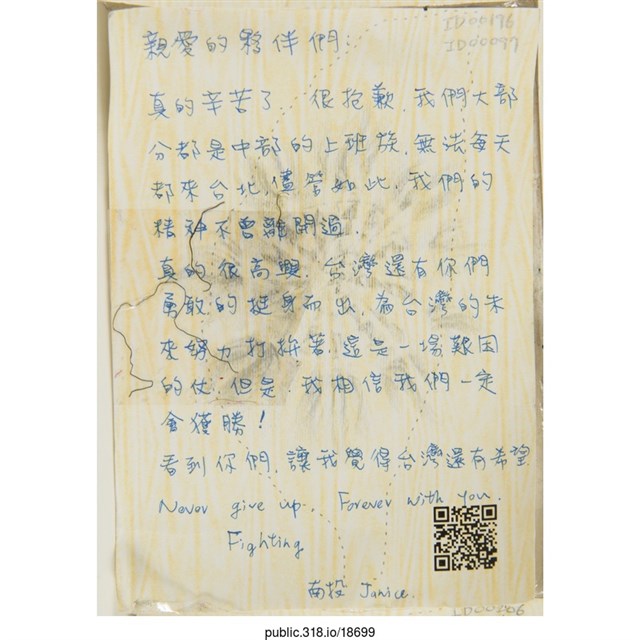 ID00176
ID00097
親愛的夥伴們:
真的辛苦了 很抱歉,我們大部
分都是中部的上班族,無法每天
都來台北,儘管如此,我們的
精神不曾離開過.
真的很高興,台灣還有你們
勇敢的挺身而出,為台灣的未
來努力打拚著,這是一場艱困
的仗,但是,我相信我們一定
會獲勝!
看到你們,讓我覺得台灣還有希望
Never give up. Forever with you.
Fighting
南投 Janice.
public.318.io/18699